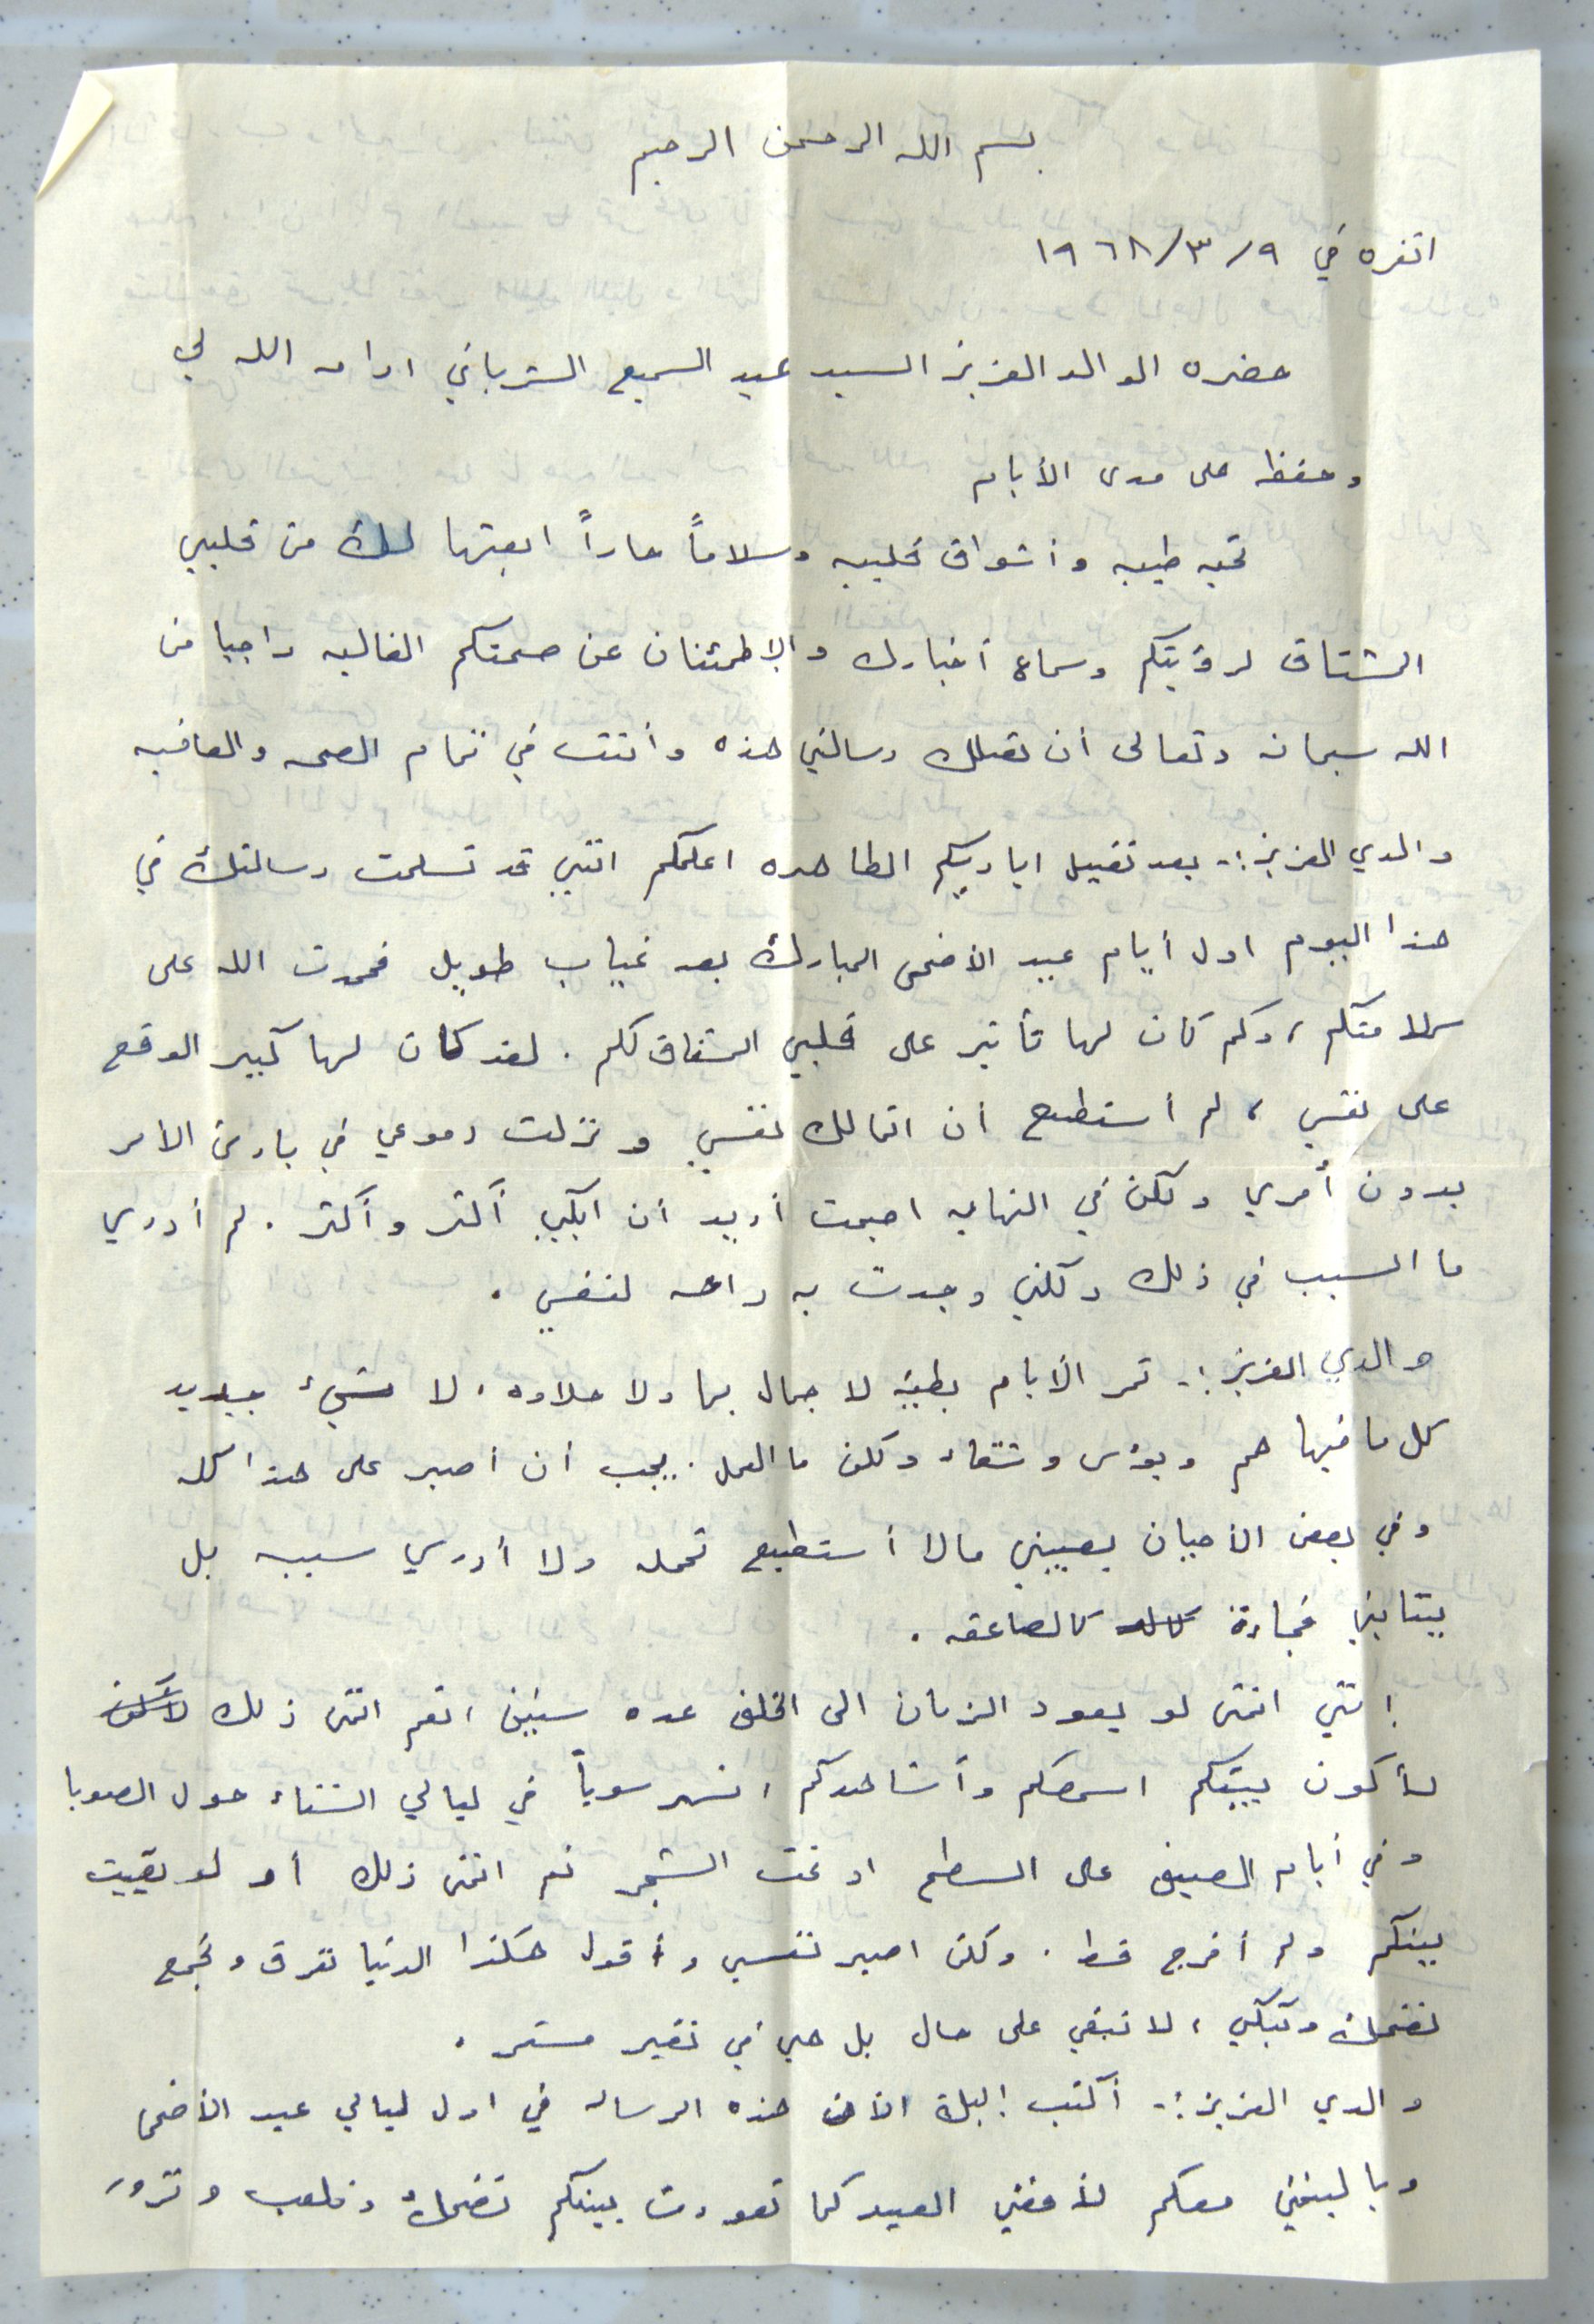 بسم الله الرحمن الرحيم
انقره في ٩/٣/١٩٦٨
حضره الوالد العزيز السيد عبد السميع الشرباتي ادامه الله لي
وحفظه على مدى الأيام
تحيه طيبه وأشواق قلبيه وسلاماً حاراً ابعثها لك من قلبي
المشتاق لرؤيتكم وسماع أخبارك والإطمئنان عن صحتكم الغاليه راجيا من
الله سبحانه وتعالى أن تصلك رسالتي هذه وأنت في تمام الصحه والعافيه
والدي العزيز :- بعد تقبيل اياديكم الطاهره اعلمكم انني قد تسلمت رسالتك في
هذا اليوم اول أيام عيد الأضحى المبارك بعد غياب طويل فحمدت الله على
سلامتكم ، وكم كان لها تأثير على قلبي المشتاق لكم . لقد كان لها كبير الوقع
على نفسي ، لم أستطع أن اتمالك نفسي ونزلت دموعي في بادئ الامر
بدون أمري ولكن في النهايه اصبحت أريد أن ابكي أكثر وأكثر . لم أدري
ما السبب في ذلك ولكني وجدت به راحه لنفسي .
والدي العزيز :- تمر الأيام بطيئه لا جمال بها ولا حلاوه ، لا شيء جديد
كل ما فيها هم وبؤس وشقاء ولكن ما العمل . يجب أن أصبر على هذا كله
وفي بعض الأحيان يصيبني مالا أستطيع تحمله ولا أدري سببه بل
ينتابني فجاءة كالصاعقه .
إنني اتمنى لو يعود الزمان الى الخلف عده سنين ، نعم اتمنى ذلك
لأكون بينكم اسمعكم وأشاهدكم ، نسهر سوياً في ليالي الشتاء حول الصوبا
وفي أيام الصيف على السطح او تحت الشجر نعم اتمنى ذلك أو لو بقيت
بينكم ولم أخرج قط . ولكن اصبر نفسي وأقول هكذا الدنيا تفرق وتجمع
تضحك وتبكي ، لا تبقي على حال بل هي في تغير مستمر .
والدي العزيز :- أكتب إليك الآن هذه الرساله في اول ليالي عيد الأضحى
ويا ليتني معكم لأقضي العيد كما تعودت بينكم نضحك ونلعب ونزور